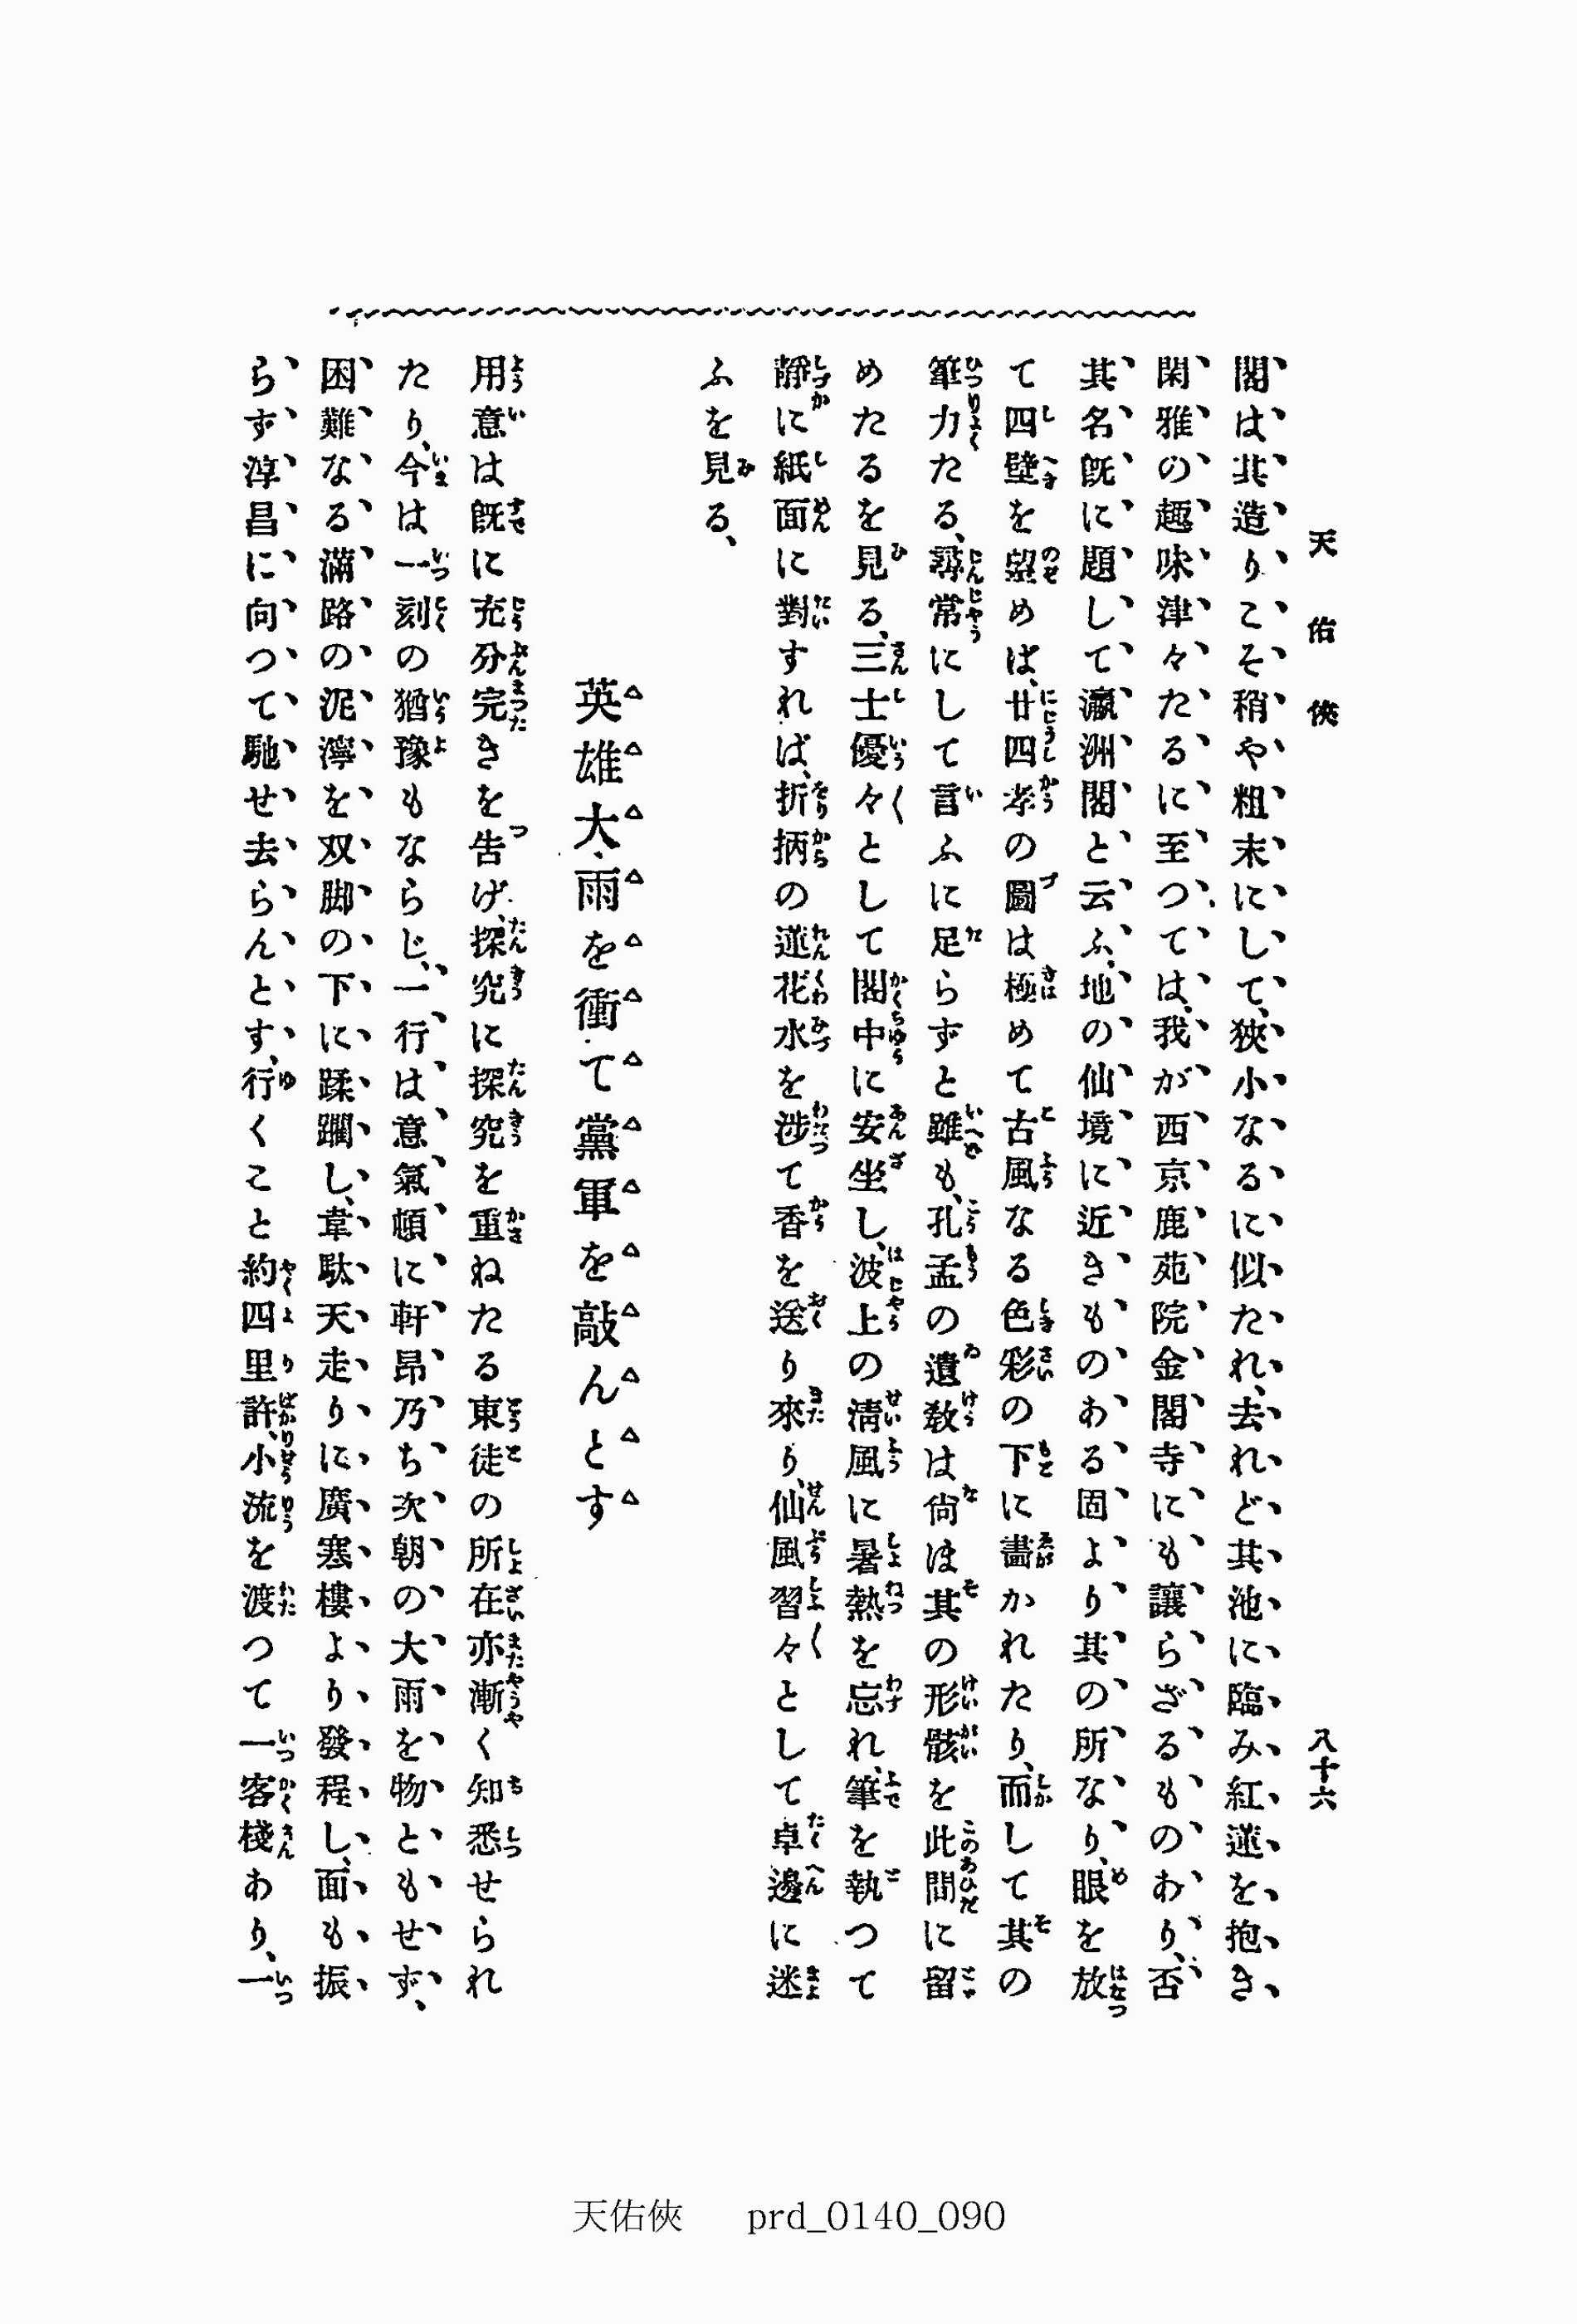 天佑俠
八十六
閣は其造りこそ稍や粗末にして、狹小なるに似たれ、去れど其池に臨み紅蓮を抱き
閑雅の趣味津々たるに至つては、我が西京鹿苑院金閣寺にも讓らざるものあり、否
其名既に題して瀛洲閣と云ふ、地の仙境に近きものある固より其の所なり、眼を放
て四壁を望めば、廿四孝の圖は極めて古風なる色彩の下に畵かれたり、而して其の
筆力たる、尋常にして言ふに足らずと雖も、孔孟の遺敎は尙ほ其の形骸を此間に留
めたるを見る、三士優々として閣中に安坐し、波上の淸風に暑熱を忘れ、筆を執つて
靜に紙面に對すれば、折柄の蓮花水を涉て香を送り來り、仙風習々として卓邊に迷
ふを見る、
英雄大雨を衝て黨軍を敲んとす
用意は既に充分完きを吿げ、探究に探究を重ねたる東徒の所在亦漸く知悉せられ
たり、今は一刻の猶豫もならじ、一行は意氣頓に軒昂乃ち次朝の大雨を物ともせず、
困難なる滿路の泥濘を双脚の下に蹂躙し、韋駄天走りに廣寒樓より發程し、面も振
らず淳昌に向つて馳せ去らんとす、行くこと約四里許、小流を渡つて一客棧あり、一
天佑俠 prd_0140_090